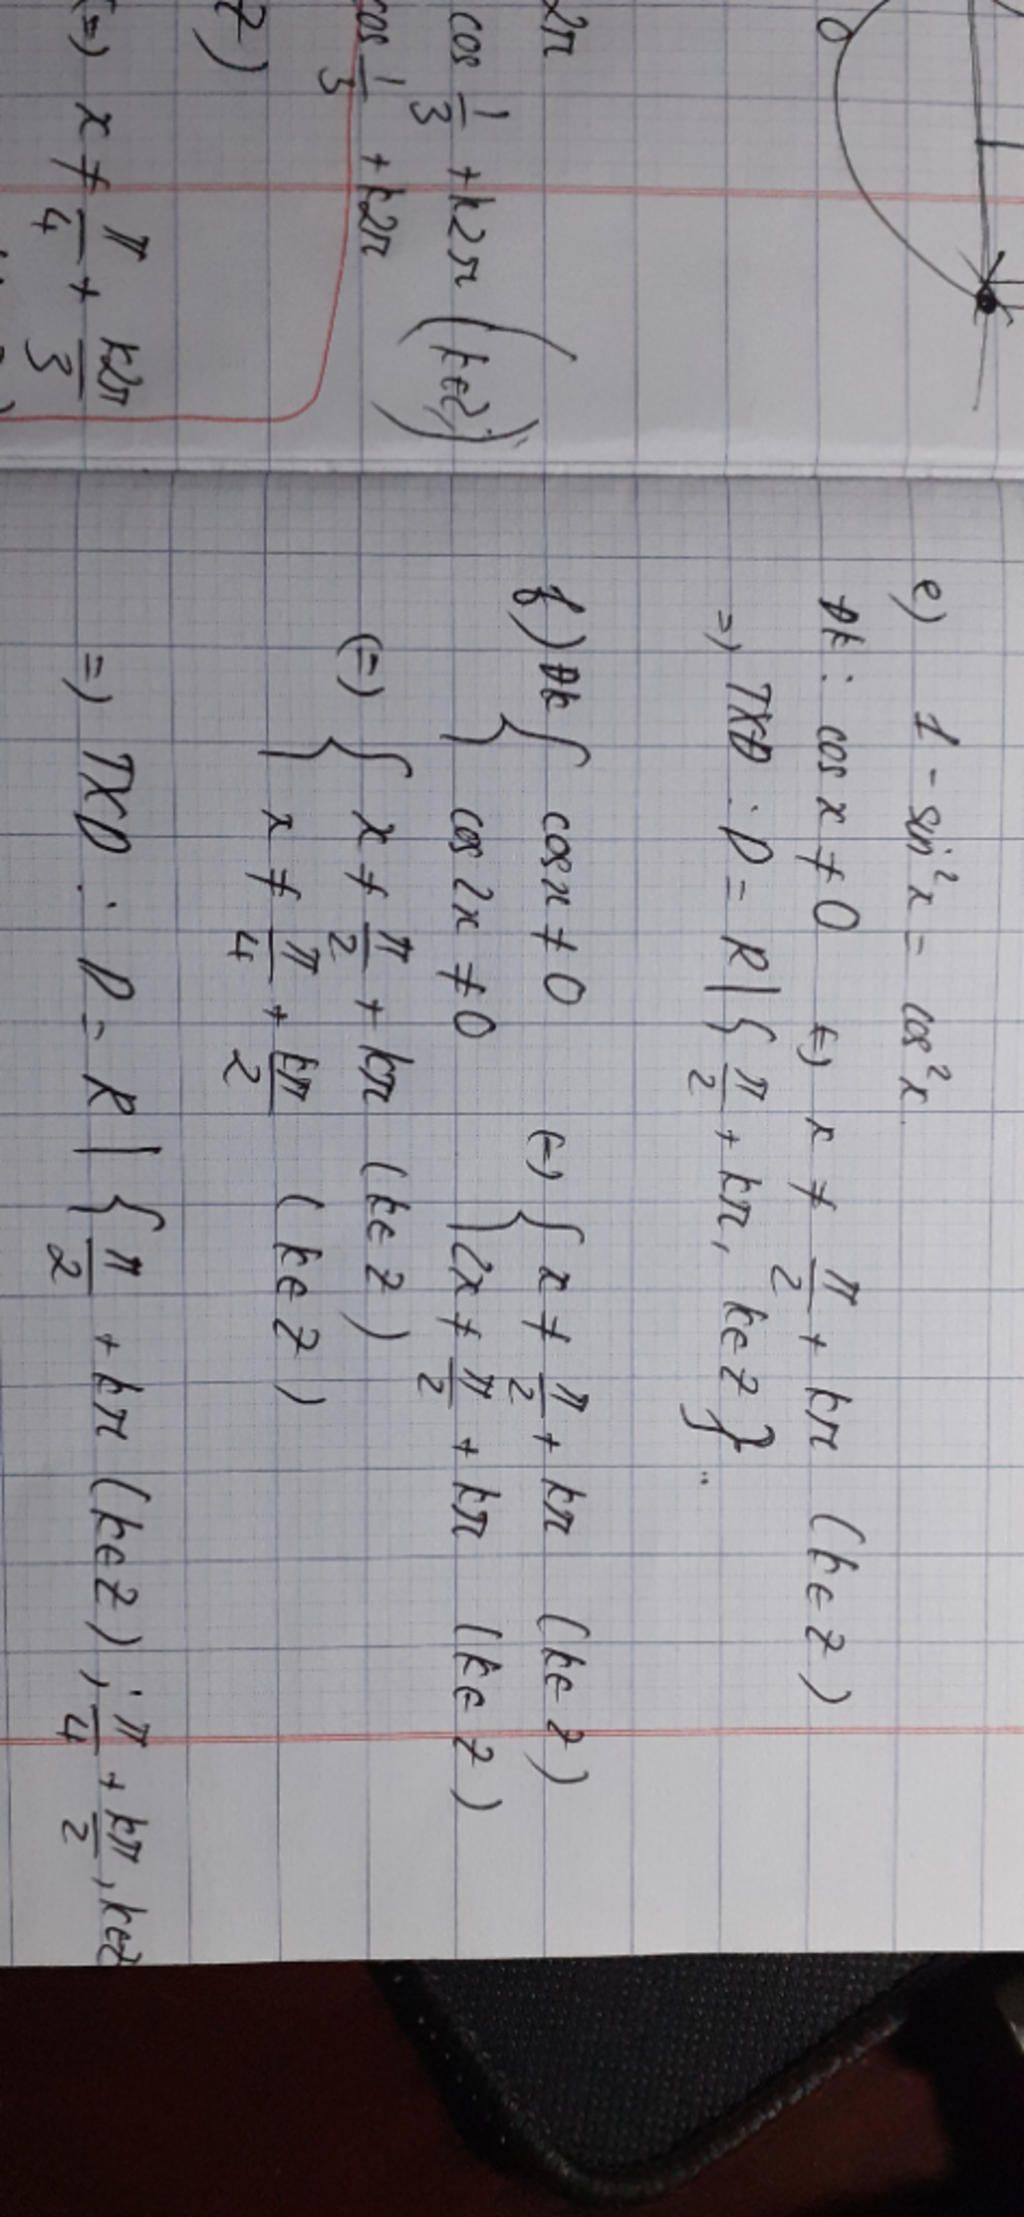 2π
cos 1/3 + k2π (k∈Z)
cos 1/3 + k2π
Z)
(=) x ≠ π/4 + k2π/3
e) 1 - sin²x = cos²x
ĐK: cos x ≠ 0 (=) x ≠ π/2 + kπ (k∈Z)
=) TXĐ: D = R | { π/2 + kπ, k∈Z }
f) ĐK { cosx ≠ 0 (=) { x ≠ π/2 + kπ (k∈Z)
cos 2x ≠ 0 2x ≠ π/2 + kπ (k∈Z)
(=) { x ≠ π/2 + kπ (k∈Z)
x ≠ π/4 + kπ/2 (k∈Z)
=) TXD: D = R | { π/2 + kπ (k∈Z); π/4 + kπ/2, k∈Z